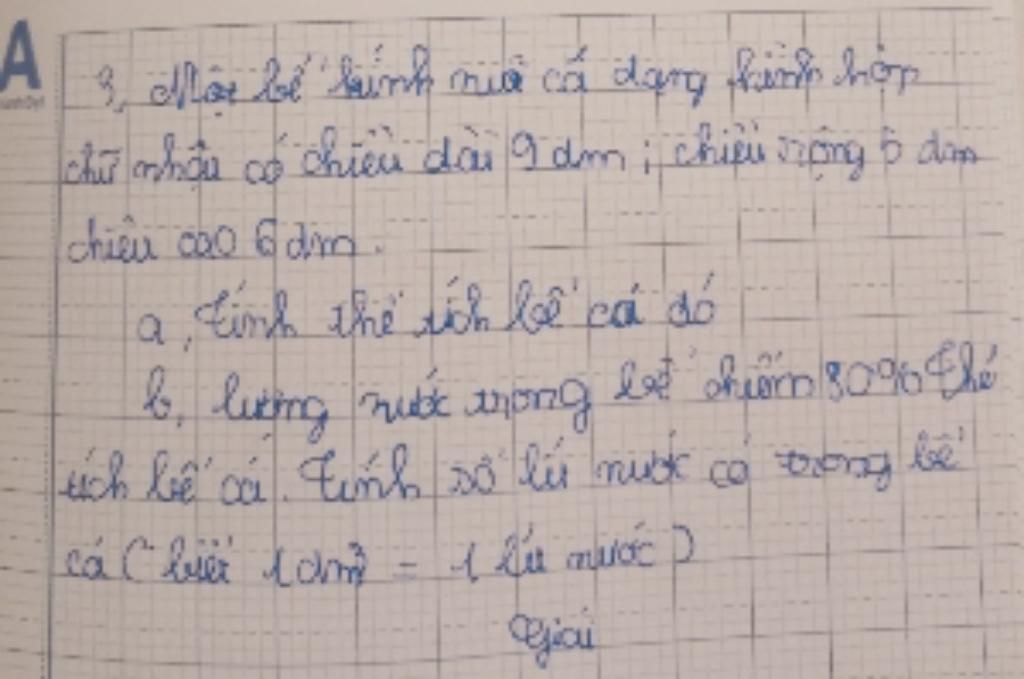 A
3, Một bể kính nuôi cá dạng hình hộp
chữ nhật có chiều dài 9 dm ; chiều rộng 5 dm
chiều cao 6 dm.
a, Tính thể tích bể cá đó
b, lượng nước trong bể chiếm 80% thể
tích bể cá. Tính số lít nước có trong bể
cá ( biết 1 dm³ = 1 lít nước )
Giải